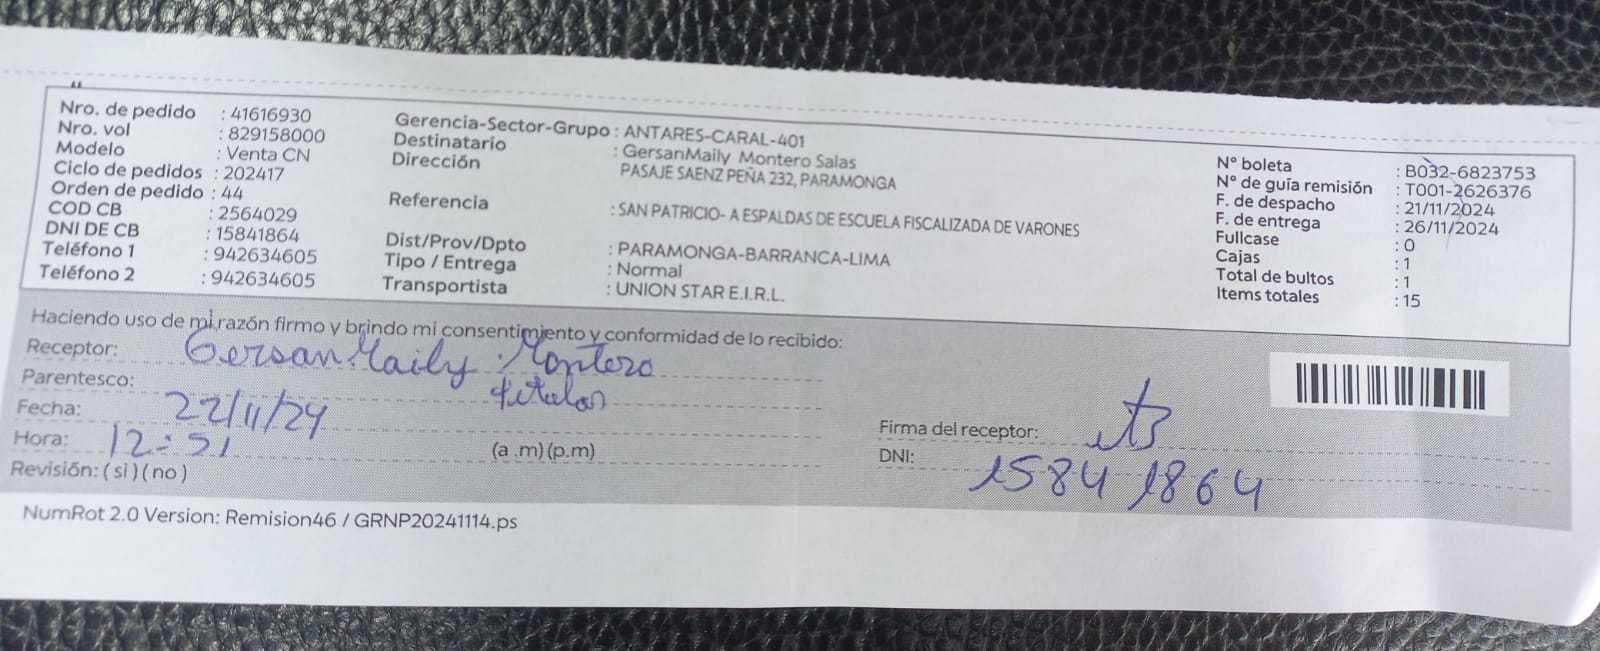 Nro. de pedido : 41616930
Nro. vol : 829158000
Modelo : Venta CN
Ciclo de pedidos : 202417
Orden de pedido : 44
COD CB : 2564029
DNI DE CB : 15841864
Teléfono 1 : 942634605
Teléfono 2 : 942634605
Gerencia-Sector-Grupo : ANTARES-CARAL-401
Destinatario : GersanMaily Montero Salas
Dirección PASAJE SAENZ PEÑA 232, PARAMONGA
Referencia : SAN PATRICIO- A ESPALDAS DE ESCUELA FISCALIZADA DE VARONES
Dist/Prov/Dpto : PARAMONGA-BARRANCA-LIMA
Tipo / Entrega : Normal
Transportista : UNION STAR E.I.R.L.
N° boleta : B032-6823753
N° de guía remisión : T001-2626376
F. de despacho : 21/11/2024
F. de entrega : 26/11/2024
Fullcase : 0
Cajas : 1
Total de bultos : 1
Items totales : 15
Haciendo uso de mi razón firmo y brindo mi consentimiento y conformidad de lo recibido:
Receptor: GersanMaily Montero
Parentesco: titular
Fecha: 22/11/24
Hora: 12:51 (a .m) (p.m)
Revisión: ( si ) ( no )
Firma del receptor:
DNI: 15841864
NumRot 2.0 Version: Remision46 / GRNP20241114.ps